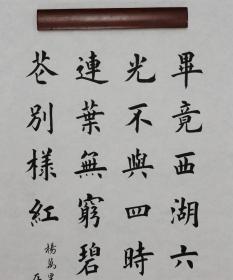 畢竟西湖六
光不與四時
連葉無窮碧
花別樣紅
楊萬